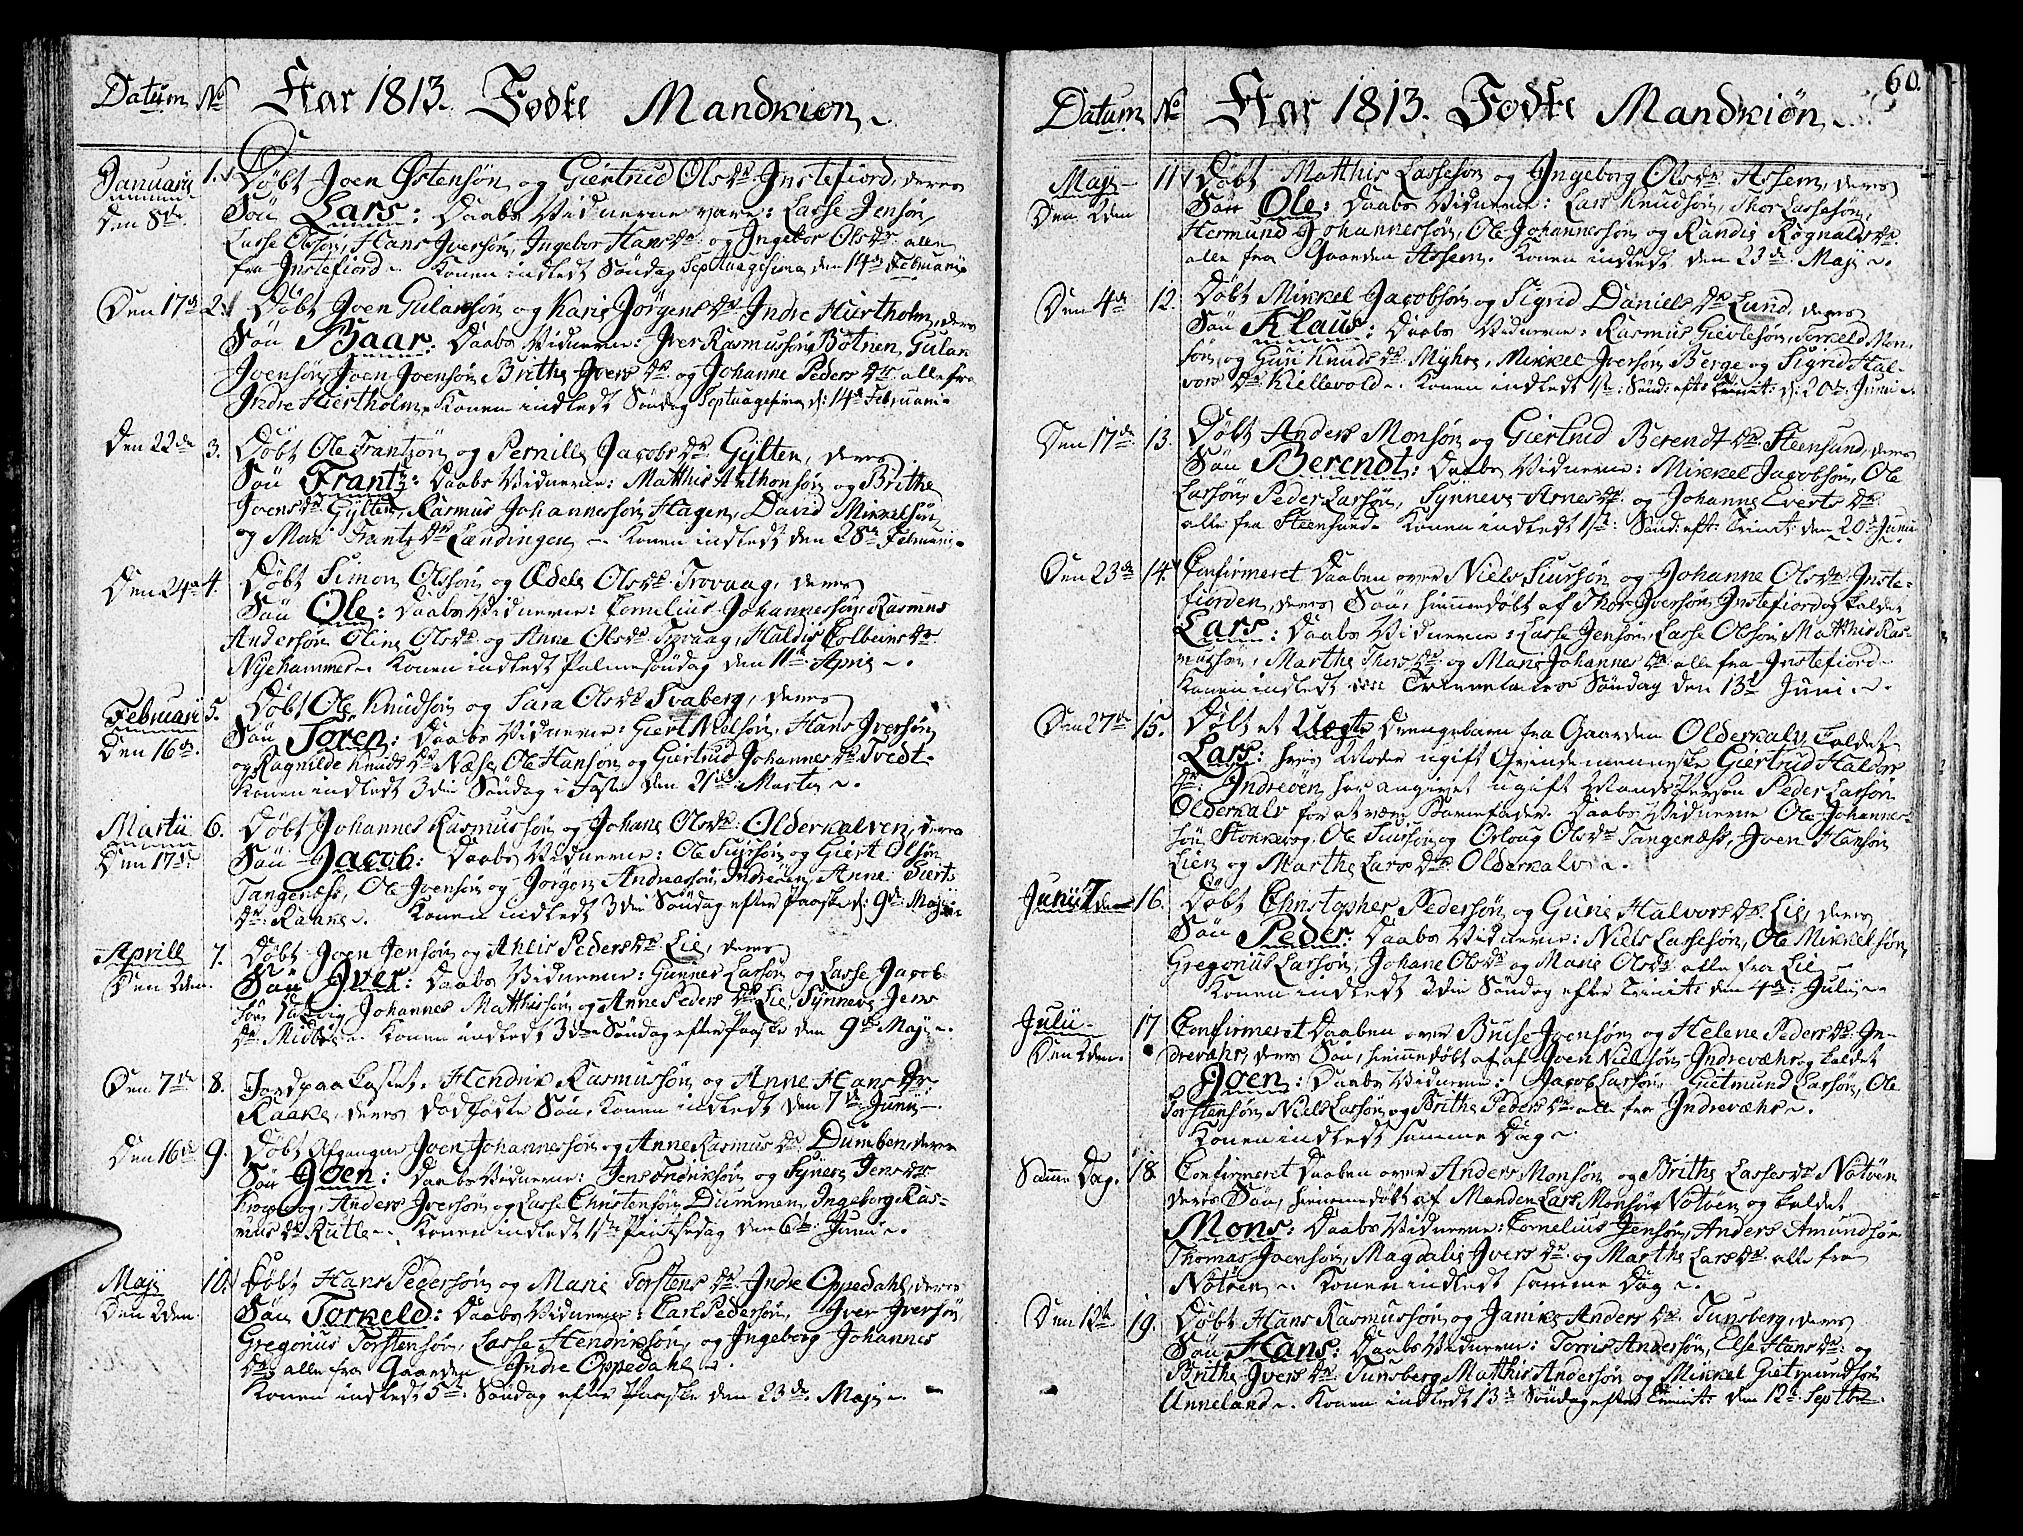 Datum No Aar 1813. Fødte Mandkiøn.
Januarii 1. Døbt Joen Østensøn og Giertrud Olsdr. Instefiord, deres
Den 8de. Søn Lars: Daabs Vidnerne vare: Lasse Jensøn,
Lasse Olssøn, Hans Iversøn, Ingebor Hansdr. og Ingebor Olsdr. alle
fra Instefiord. Konen indledt Søndag Septuagesima den 14de Februarii.
Den 17de 2. Døbt Joen Gulaksøn og Kari Jörgensdr. Indre Hiertholm, deres
Søn Baar: Daabs Vidnerne: Iver Rasmussøn Botnen, Gulak
Joensøn, Joen Joensøn, Brithe Iversdr. og Johanne Pedersdr. alle fra
Indre Hiertholm. Konen indledt Søndag Septuagesima d: 14de Februarii.
Den 22de 3. Døbt Ole Frantzøn og Pernille Jacobsdr. Gylten, deres
Søn Frantz: Daabs Vidnerne: Matthis Anthonsøn og Brithe
Joensdr. Gylten, Rasmus Johannessøn Hagen, David Mikkelsøn
og Mari Frantzdr. Lændingen. Konen indledt den 28de Februarii.
Den 24de 4. Døbt Simon Olssøn og Ædele Olsdr. Trovaag, deres
Søn Ole: Daabs Vidnerne: Cornelius Johannessøn, Rasmus
Andersøn, Oline Olsdr. og Anne Olsdr. Trovaag, Haldis Colbeinsdr.
Nyehammer. Konen indledt Palmesøndag den 11te April.
Februarii 5. Døbt Ole Knudsøn og Sara Olsdr. Svaberg, deres
Den 16de. Søn Tören: Daabs Vidnerne: Giert Nielsøn, Hans Iversøn
og Ragnilde Knudsdr. Næse, Ole Hansøn og Giertrud Johannesdr. Tvedt.
Konen indledt 3die Søndag i Faste den 21de Martii.
Martii 6. Døbt Johannes Rasmussøn og Johane Olsdr. Olderkalven, deres
Den 17de Søn Jacob: Daabs Vidnerne: Ole Siursøn og Giert Olsøn
Tangenæss, Ole Joensøn og Jörgen Andreassøn Indreøen, Anne Siurs
dr. Raake. Konen indledt 3die Søndag efter Paaske d: 9de Maji
Aprill 7. Døbt Joen Jensøn og Ahlis Pedersdr. Lie, deres
Den 2den. Søn Iver: Daabs Vidnerne: Gunner Larsøn og Lasse Jacob-
søn, Johannes Matthissøn og Anne Pedersdr. Lie, Synneve Jens
dr. Konen indledt 3die Søndag efter Paaske den 9de Maji.
Den 7de 8. Jordpaakastet. Hendrik Rasmussøn og Anne Hansdr.
Raake, deres dødfødte Søn, Konen indledt den 7de Junii.
Den 16de 9. Døbt Afgangne Joen Johannessøn og Anne Rasmusdr. Dumben, deres
Søn Joen: Daabs Vidnerne: Jens Fredriksøn og Synneve Jensdr.
Anders Iversøn og Lasse Christensøn Dummen, Ingeborg Ras-
musdr. Rutle. Konen indledt 1ste Pintsedag den 6te Junii.
Maji 10. Døbt Hans Pedersøn og Marie Torstensdr. Indre Oppedahl, deres
Den 2den Søn Torkeld: Daabs Vidnerne: Carl Pedersøn, Iver Iversøn,
Gregorius Torstensøn, Lasse Hendriksøn, og Ingeborg Johannes
dr. alle fra Gaarden Indre Oppedahl.
Konen indledt 5te Søndag efter Paaske den 23de Maji.
60.
Datum No Aar 1813. Fødte Mandkiøn.
Maji 11 Døbt Matthis Lassesøn og Ingeborg Olsdr. Assem, deres
Den 2den Søn Ole: Daabs Vidnerne: Lars Knudsøn, Thor Lassesøn,
Hermund Johannessøn, Ole Johannessøn og Randi Rognaldsdr.
alle fra Gaarden Assem. Konen indledt den 23de Maji.
Den 4de 12. Døbt Mikkel Jacobsøn og Sigrid Danielsdr. Lund, deres
Søn Klaus: Daabs Vidnerne: Rasmus Gievlesøn, Torkeld Mon-
søn, og Guri Knudsdr. Myhre, Mikkel Iversøn Berge og Sigrid Hal-
vorsdr. Kiellevold. Konen indledt 1ste Sønd: efter Trinit: d: 20de Junii.
Den 17de 13. Døbt Anders Monsøn og Giertrud Berendtdr. Steensund, deres
Søn Berendt: Daabs Vidnerne: Mikkel Jacobsøn, Ole
Larsøn, Peder Larsøn, Synneve Arnesdr. og Johanne Evertsdr.
alle fra Steensund. Konen indledt 1ste Sønd: eft: Trinit: den 20de Junii
Den 23de 14. Confirmeret Daaben over Niels Siursøn og Johanne Olsdr. Inste-
fiorden, deres Søn, hiemmedøbt af Thor Iversøn Instefiord og kaldet
Lars: Daabs Vidnerne: Lasse Jensøn, Lasse Olsøn, Matthis Ras-
mussøn, Marthe Thorsdr. og Mari Johannesdr. alle fra Instefiord.
Konen indledt Trinitatis Søndag den 13de Junii.
Den 27de 15. Døbt et Uægte Drengebarn fra Gaarden Olderkalv, kaldet
Lars: hvis Moder ugift Qvindemenneske Giertrud Halvors
dr. Indreøen har angivet ugift Mands Person Peder Larsøn
Olderkalv for at være Barnefader. Daabs Vidnerne Ole Johannes-
søn Ole Siursøn og Orloug Olsdr. Tangenæss, Joen Hansøn
Lien og Marthe Larsdr. Olderkalv.
Junii 7de 16. Døbt Christopher Pedersøn og Gurie Halvorsdr. Lie, deres
Søn Peder: Daabs Vidnerne: Niels Lassesøn, Ole Mikkelsøn,
Gregorius Larsøn, Johane Olsdr. og Marie Olsdr. alle fra Lie.
Konen indledt 3die Søndag efter Trinit: den 4de Julii.
Julii 17 Confirmeret Daaben over Bruse Joensøn og Helene Pedersdr. In-
Den 2den. drevæhr, deres Søn, hiemmedøbt af af Joen Nielsøn Indrevæhr og kaldet
Joen: Daabs Vidnerne: Jacob Larsøn, Gietmund Larsøn, Ole
Torstensøn, Niels Larsøn og Brithe Pedersdr. alle fra Indrevæhr.
Konen indledt samme Dag.
Samme Dag. 18 Confirmeret Daaben over Anders Monsøn og Brithe Lassesdr. Notøen
deres Søn, hiemmedøbt af Manden Lars Monsøn Notøen og kaldet
Mons: Daabs Vidnerne: Cornelius Jensøn, Anders Amundsøn
Thomas Joensøn, Magdali Iversdr. og Marthe Larsdr. alle fra
Notøen. Konen indledt samme Dag.
Den 12te 19. Døbt Hans Rasmussøn og Janike Andersdr. Tunsberg, deres
Søn Hans: Daabs Vidnerne: Torris Andersøn, Else Hansdr. og
Brithe Iversdr. Tunsberg, Matthis Andersøn og Mikkel Gietmundsøn
Unneland. Konen indledt 13de Søndag efter Trinit: den 12te Septbr.